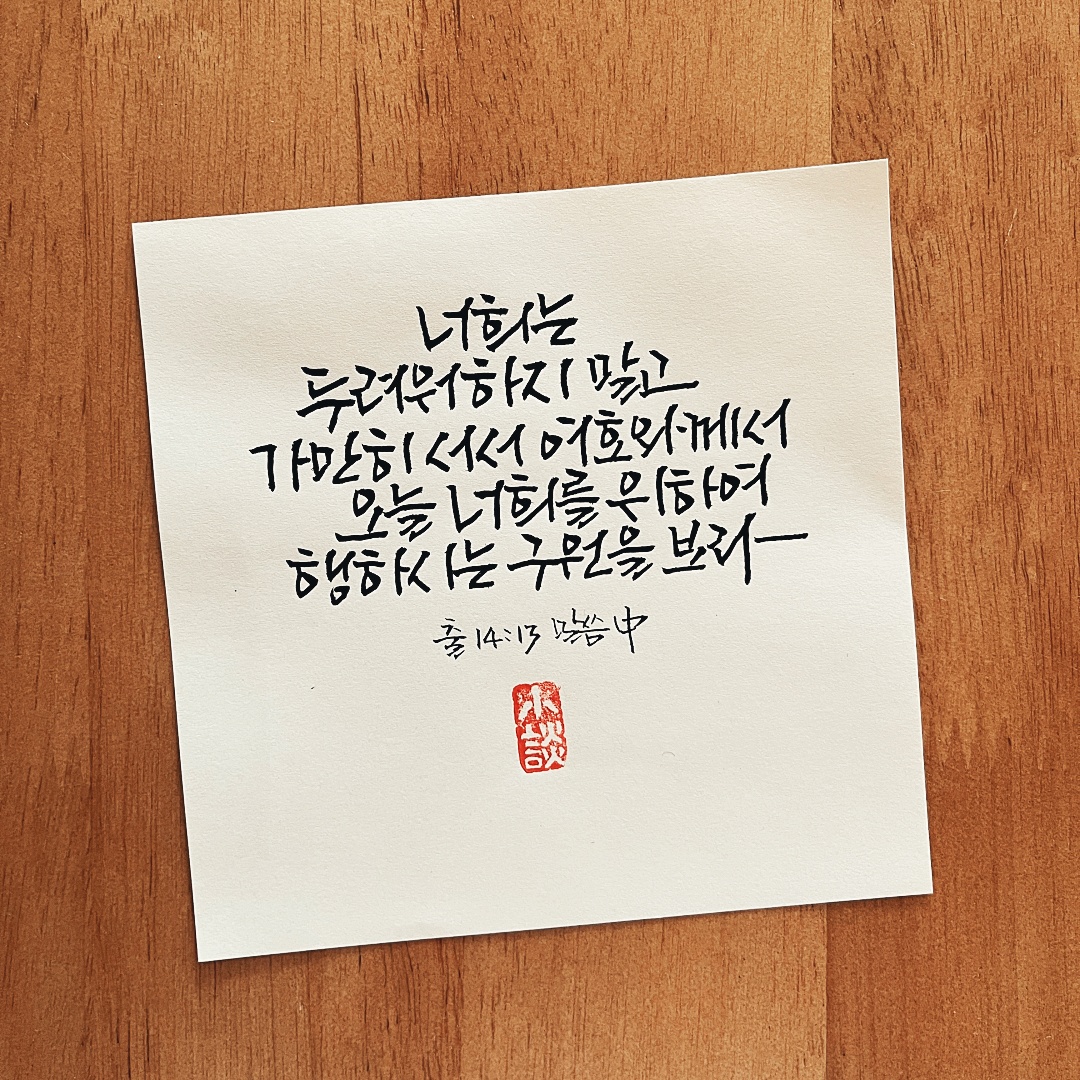 너희는
두려워하지 말고
가만히 서서 여호와께서
오늘 너희를 위하여
행하시는 구원을 보라
출 14:13 말씀 中
小談